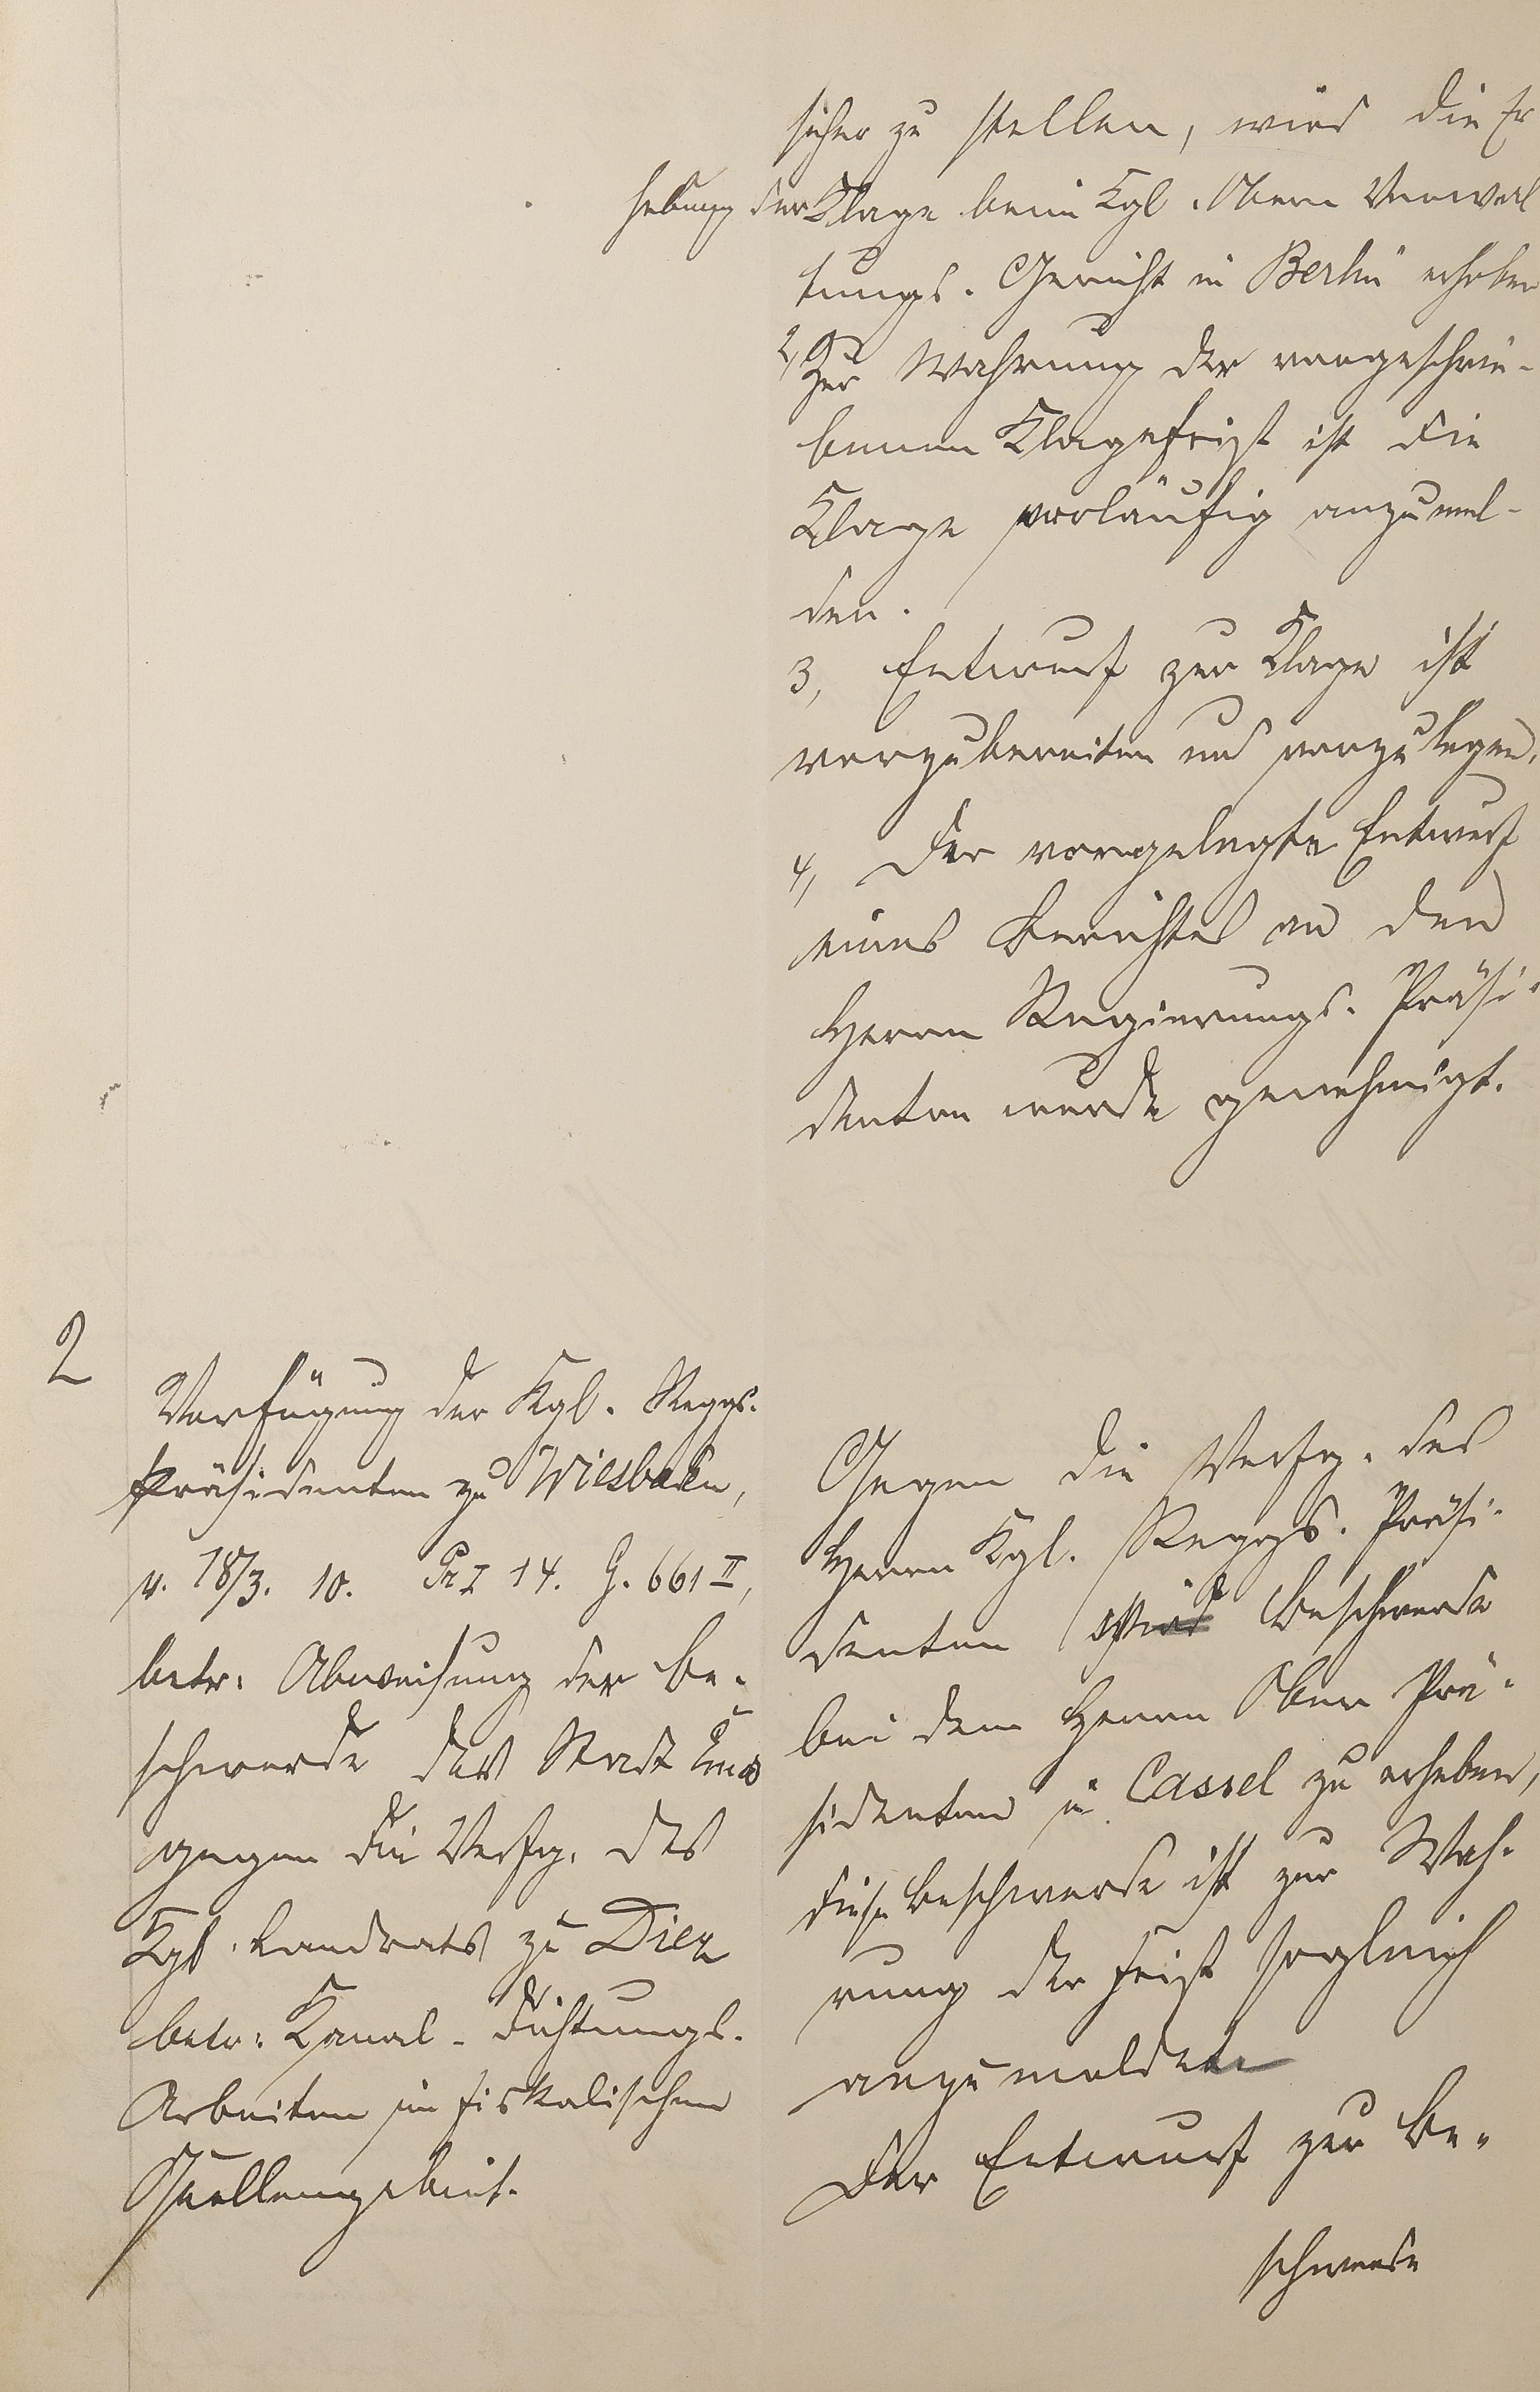 sicher zu stellen, wird die Er
hebung der Klage beim Kgl. Ober Verwal
tungs-Gericht in Berlin erhoben
2, Zur Wahrung der vorgeschrie-
benen Klagefrist ist die
Klage vorläufig anzumel-
den.
3, Entwurf zur Klage ist
vorzubereiten und vorzulegen.
4, Der vorgelegte Entwurf
eines Berichtes an den
Herrn Regierungs-Präsi-
denten wurde genehmigt.
2
Verfügung der Kgl. Reggs.
Präsidenten zu Wiesbaden,
v. 18/3. 10. Pr I 14. G. 661 II,
betr. Abweisung der Be-
schwerde der Stadt Ems
gegen die Verfg. des
Kgl. Landrats zu Diez
betr. Kanal-Dichtungs-
Arbeiten im fiskalischen
Quellengebiet.
Gegen die Verfg. des
Herrn Kgl. Reggs. Präsi-
denten ist Beschwerde
bei dem Herrn Ober Prä-
sidenten in Cassel zu erheben,
diese Beschwerde ist zur Wah-
rung der Frist sogleich
anzumelden
Der Entwurf zur Be-
schwerde